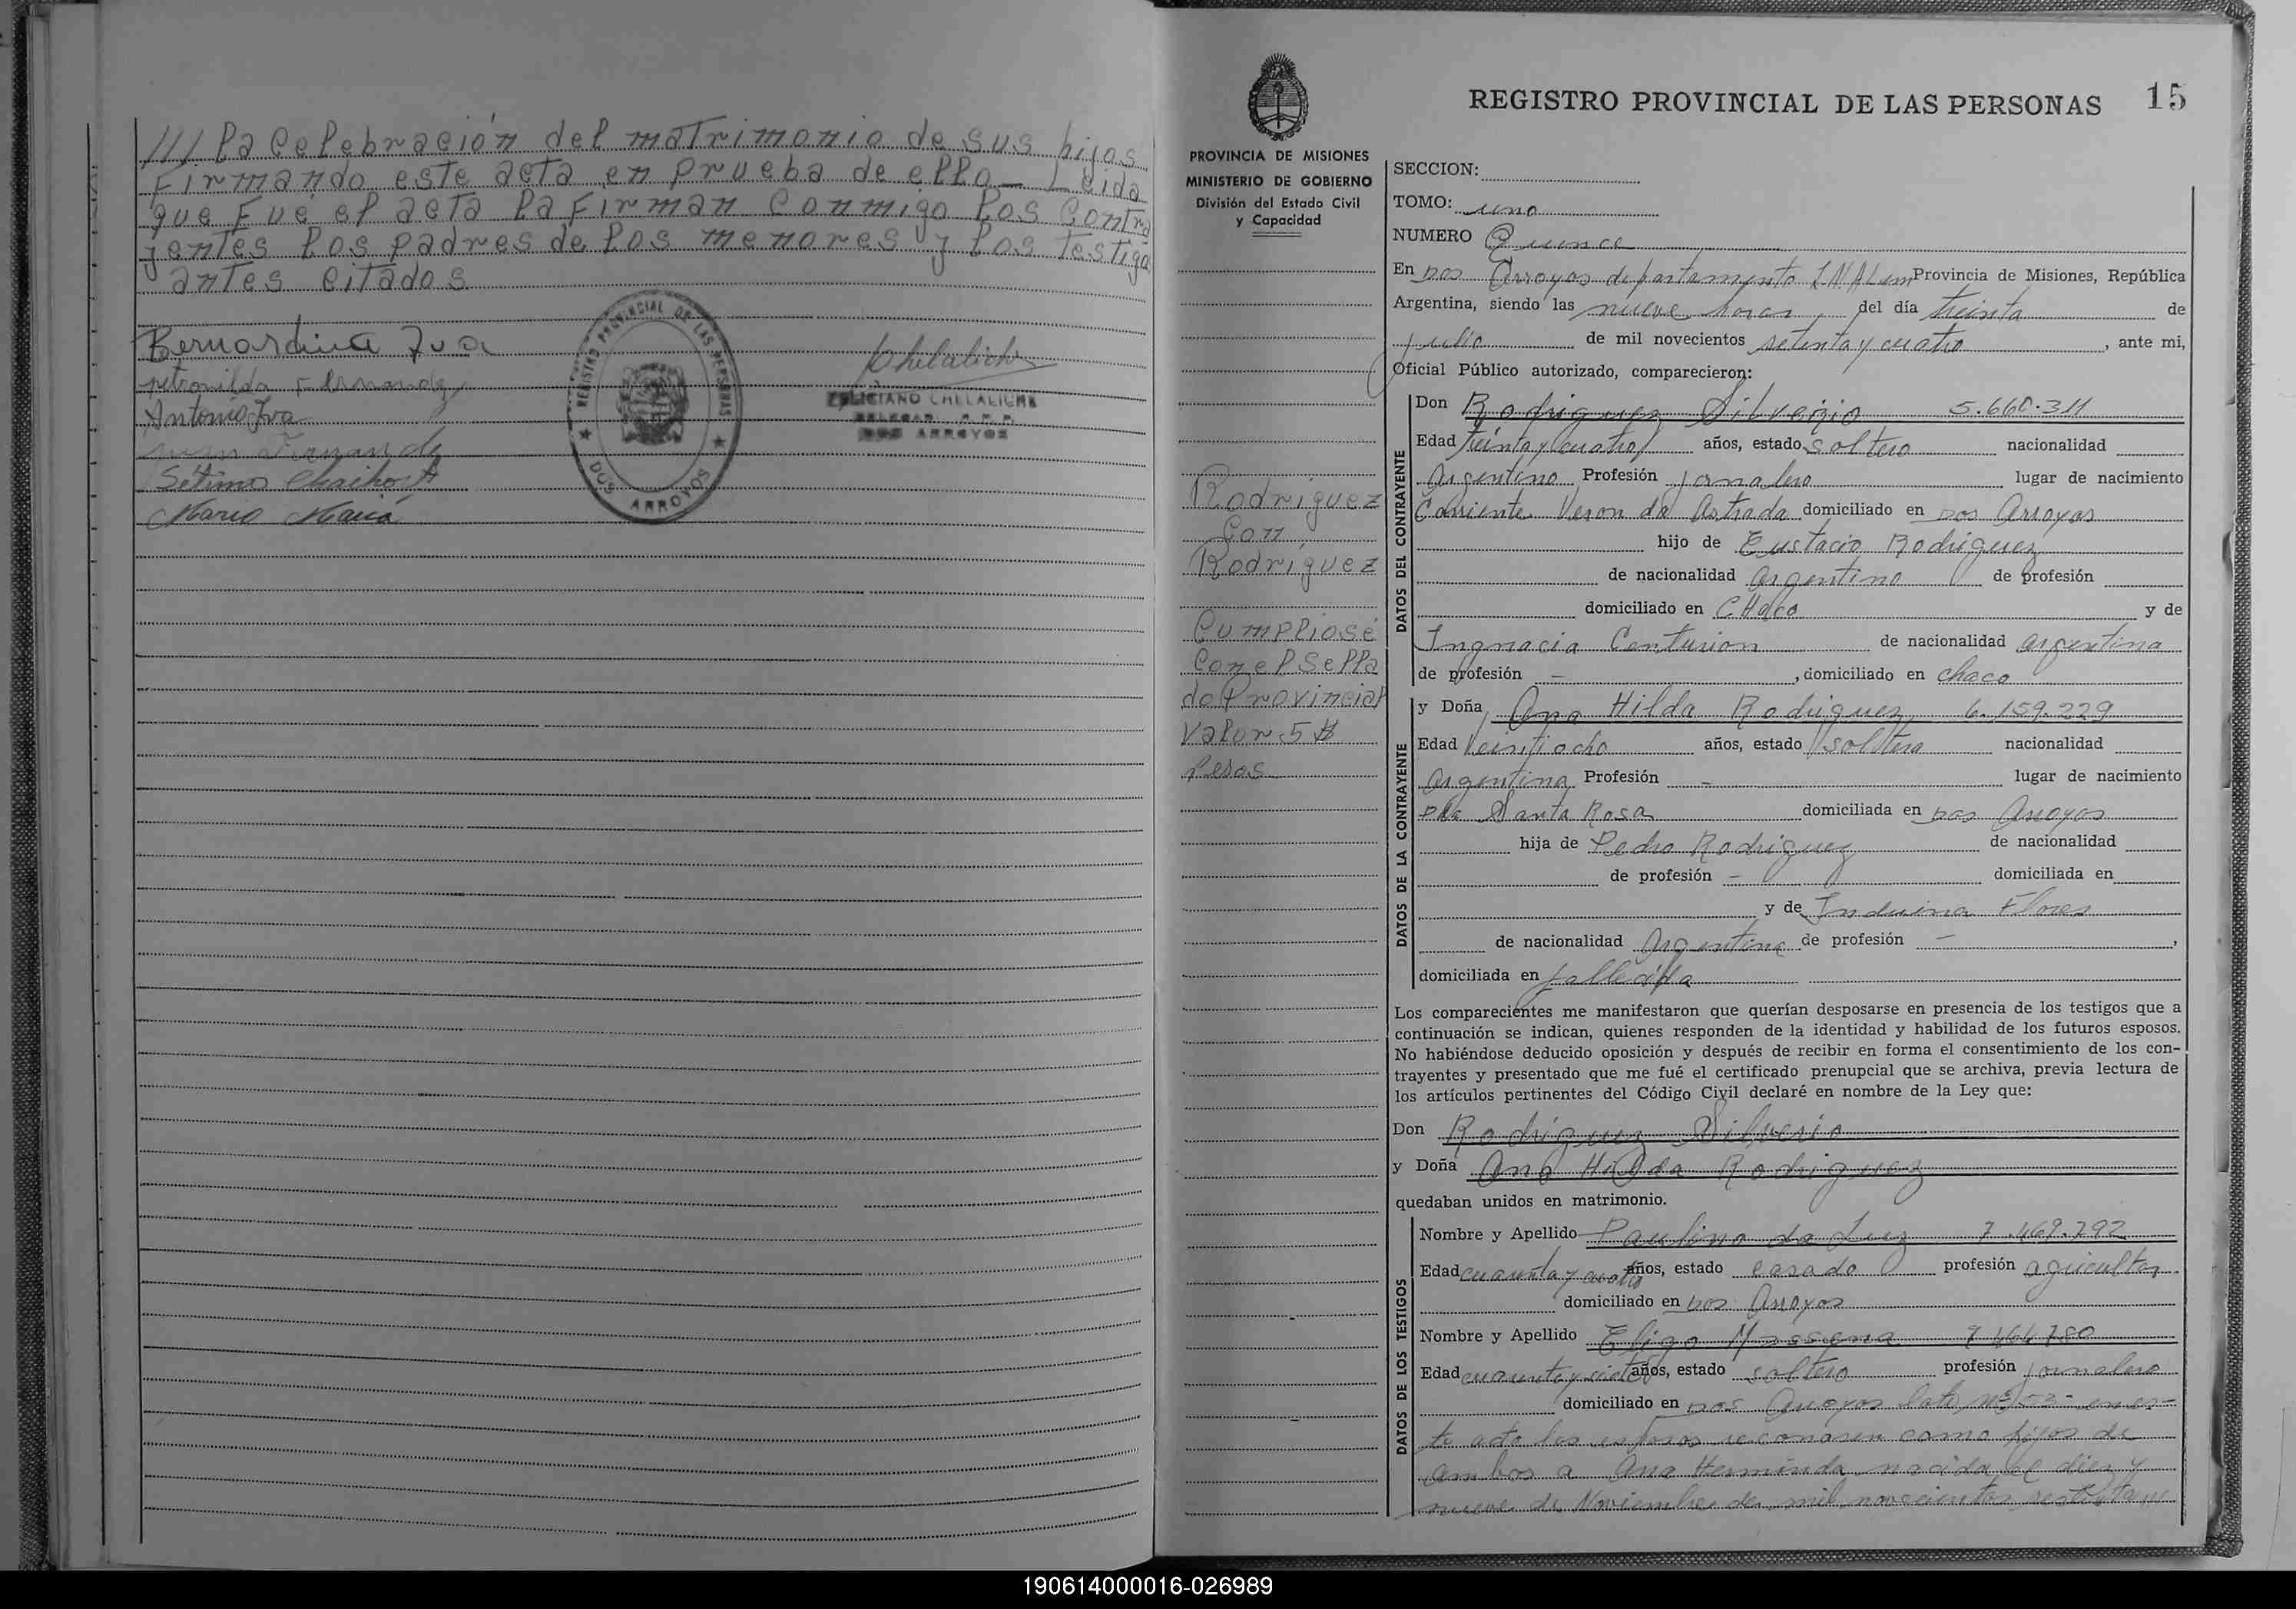 /// la celebración del matrimonio de sus hijos
Firmando este acta en prueba de ello - Leida
que Fué el acta la Firman conmigo los contra
yentes los padres de los menores y los testigo
antes citados
Bernardina Iva
petronilda Fernandez
Antonio Iva
Juan Fernandz
Sétimo
Mario Maciá
REGISTRO PROVINCIAL DE LAS PERSONAS
DOS ARROYOS
Chelaliche
FELICIANO CHELALICHE
DOS ARROYOS
REGISTRO PROVINCIAL DE LAS PERSONAS 15
PROVINCIA DE MISIONES
MINISTERIO DE GOBIERNO
División del Estado Civil
y Capacidad
Rodriguez
Con
Rodriguez
Cumpliose
Con el Sella
do Provincial
Valor 5 $
Pesos
SECCION:
TOMO: uno
NUMERO Quince
En Dos Arroyos departamento L.N.Alem Provincia de Misiones, República
Argentina, siendo las nueve horas del día treinta de
julio de mil novecientos setenta y cuatro, ante mi,
Oficial Público autorizado, comparecieron:
DATOS DEL CONTRAYENTE
Don Rodriguez Silverio 5.660.311
Edad treinta y cuatro años, estado soltero nacionalidad
Argentino Profesión jornalero lugar de nacimiento
Corriente Veron da Astrada domiciliado en Dos Arroyos
hijo de Eustacio Rodriguez
de nacionalidad argentino de profesión
domiciliado en CHaco y de
Ingnacia Centurion de nacionalidad argentina
de profesión -, domiciliado en chaco
DATOS DE LA CONTRAYENTE
y Doña Ana Hilda Rodriguez 6.159.229
Edad Veintiocho años, estado soltera nacionalidad
Argentina Profesión - lugar de nacimiento
Santa Rosa domiciliada en Dos Arroyos
hija de Pedro Rodriguez de nacionalidad
de profesión - domiciliada en
y de Induina Flores
de nacionalidad Argentina de profesión -,
domiciliada en fallecida
Los comparecientes me manifestaron que querían desposarse en presencia de los testigos que a
continuación se indican, quienes responden de la identidad y habilidad de los futuros esposos.
No habiéndose deducido oposición y después de recibir en forma el consentimiento de los con-
trayentes y presentado que me fué el certificado prenupcial que se archiva, previa lectura de
los artículos pertinentes del Código Civil declaré en nombre de la Ley que:
Don Rodriguez Silverio
y Doña Ana Hilda Rodriguez
quedaban unidos en matrimonio.
DATOS DE LOS TESTIGOS
Nombre y Apellido Paulino da Luz 7.469.792
Edad cuarenta y cuatro años, estado casado profesión agricultor
domiciliado en Dos Arroyos
Nombre y Apellido Eligo Massena
Edad cuarenta y siete años, estado soltero profesión jornalero
domiciliado en Dos Arroyos Lote en es-
te acto los esposos reconosen como hijos de
ambos a Ana Herminda nacida el diez y
nueve de Noviembre de mil novecientos
190614000016-026989